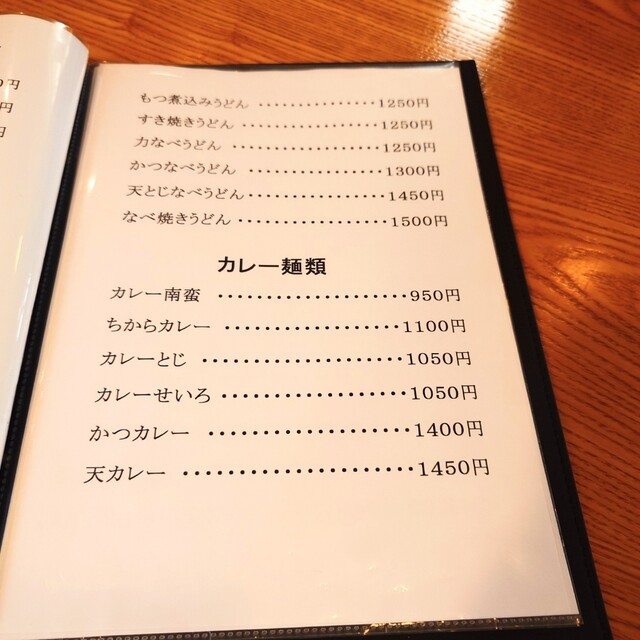 0円
円
円
もつ煮込みうどん ・・・・・・・・・・・・・・・1250円
すき焼きうどん ・・・・・・・・・・・・・・・・・1250円
力なべうどん ・・・・・・・・・・・・・・・・・・1250円
かつなべうどん ・・・・・・・・・・・・・・・・・1300円
天とじなべうどん・・・・・・・・・・・・・・・・・1450円
なべ焼きうどん ・・・・・・・・・・・・・・・・・・1500円
カレー麺類
カレー南蛮 ・・・・・・・・・・・・・・・・・・・・950円
ちからカレー ・・・・・・・・・・・・・・・・・・1100円
カレーとじ ・・・・・・・・・・・・・・・・・・・・1050円
カレーせいろ ・・・・・・・・・・・・・・・・・・・1050円
かつカレー ・・・・・・・・・・・・・・・・・・・・1400円
天カレー ・・・・・・・・・・・・・・・・・・・・・・・1450円